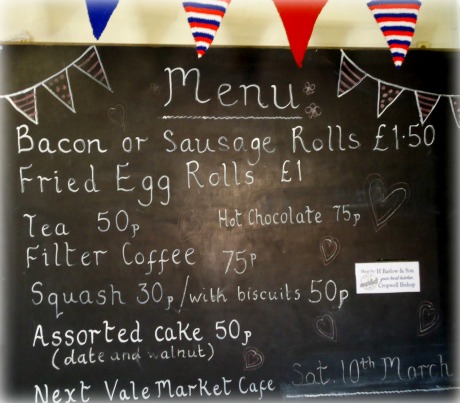 Menu
Bacon or Sausage Rolls £1·50
Fried Egg Rolls £1
Tea 50p Hot Chocolate 75p
Filter Coffee 75p
Squash 30p/with biscuits 50p
H Barlow & Son
your local butcher
Cropwell Bishop
Assorted cake 50p
(date and walnut)
Next Vale Market Cafe Sat. 10th March